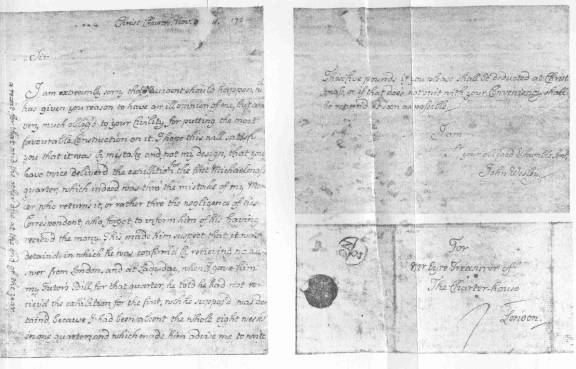 Christ Church, Nov.
Sir
I am extreamly sorry that accident should happen, wch
has given you reason to have an ill opinion of me, but am
very much oblig'd to your Civility, for putting the most
favourable Construction on it. I hope this will satisfie
you that it was by mistake and not my design, that you
have twice deliver'd the exhibition for the first Michaelmas
quarter, which indeed was thro the mistake of my
who returns it, or rather thro the negligence of his
Correspondent, who forgot to inform him of his having
receiv'd the mony. This made him suspect that it was
detain'd, in which he was confirm'd by recieving no an-
swer from London, and at Ladyday, when I gave him
my Tutor's Bill for that quarter, he told he had not re-
cieved the exhibition for the first, wch he suppos'd was de-
tain'd because I had been absent the whole eight weeks
in one quarter, and which made him advise me to write
These five pounds if you please shall be deducted at Christ-
mass, or if that does not suit with your Conveniency shall
be return'd as soon as possible.
I am
Sr your oblig'd & humble Servt
John Wesley
For
Mr Eyre Treasurer of
The Charter-house
London